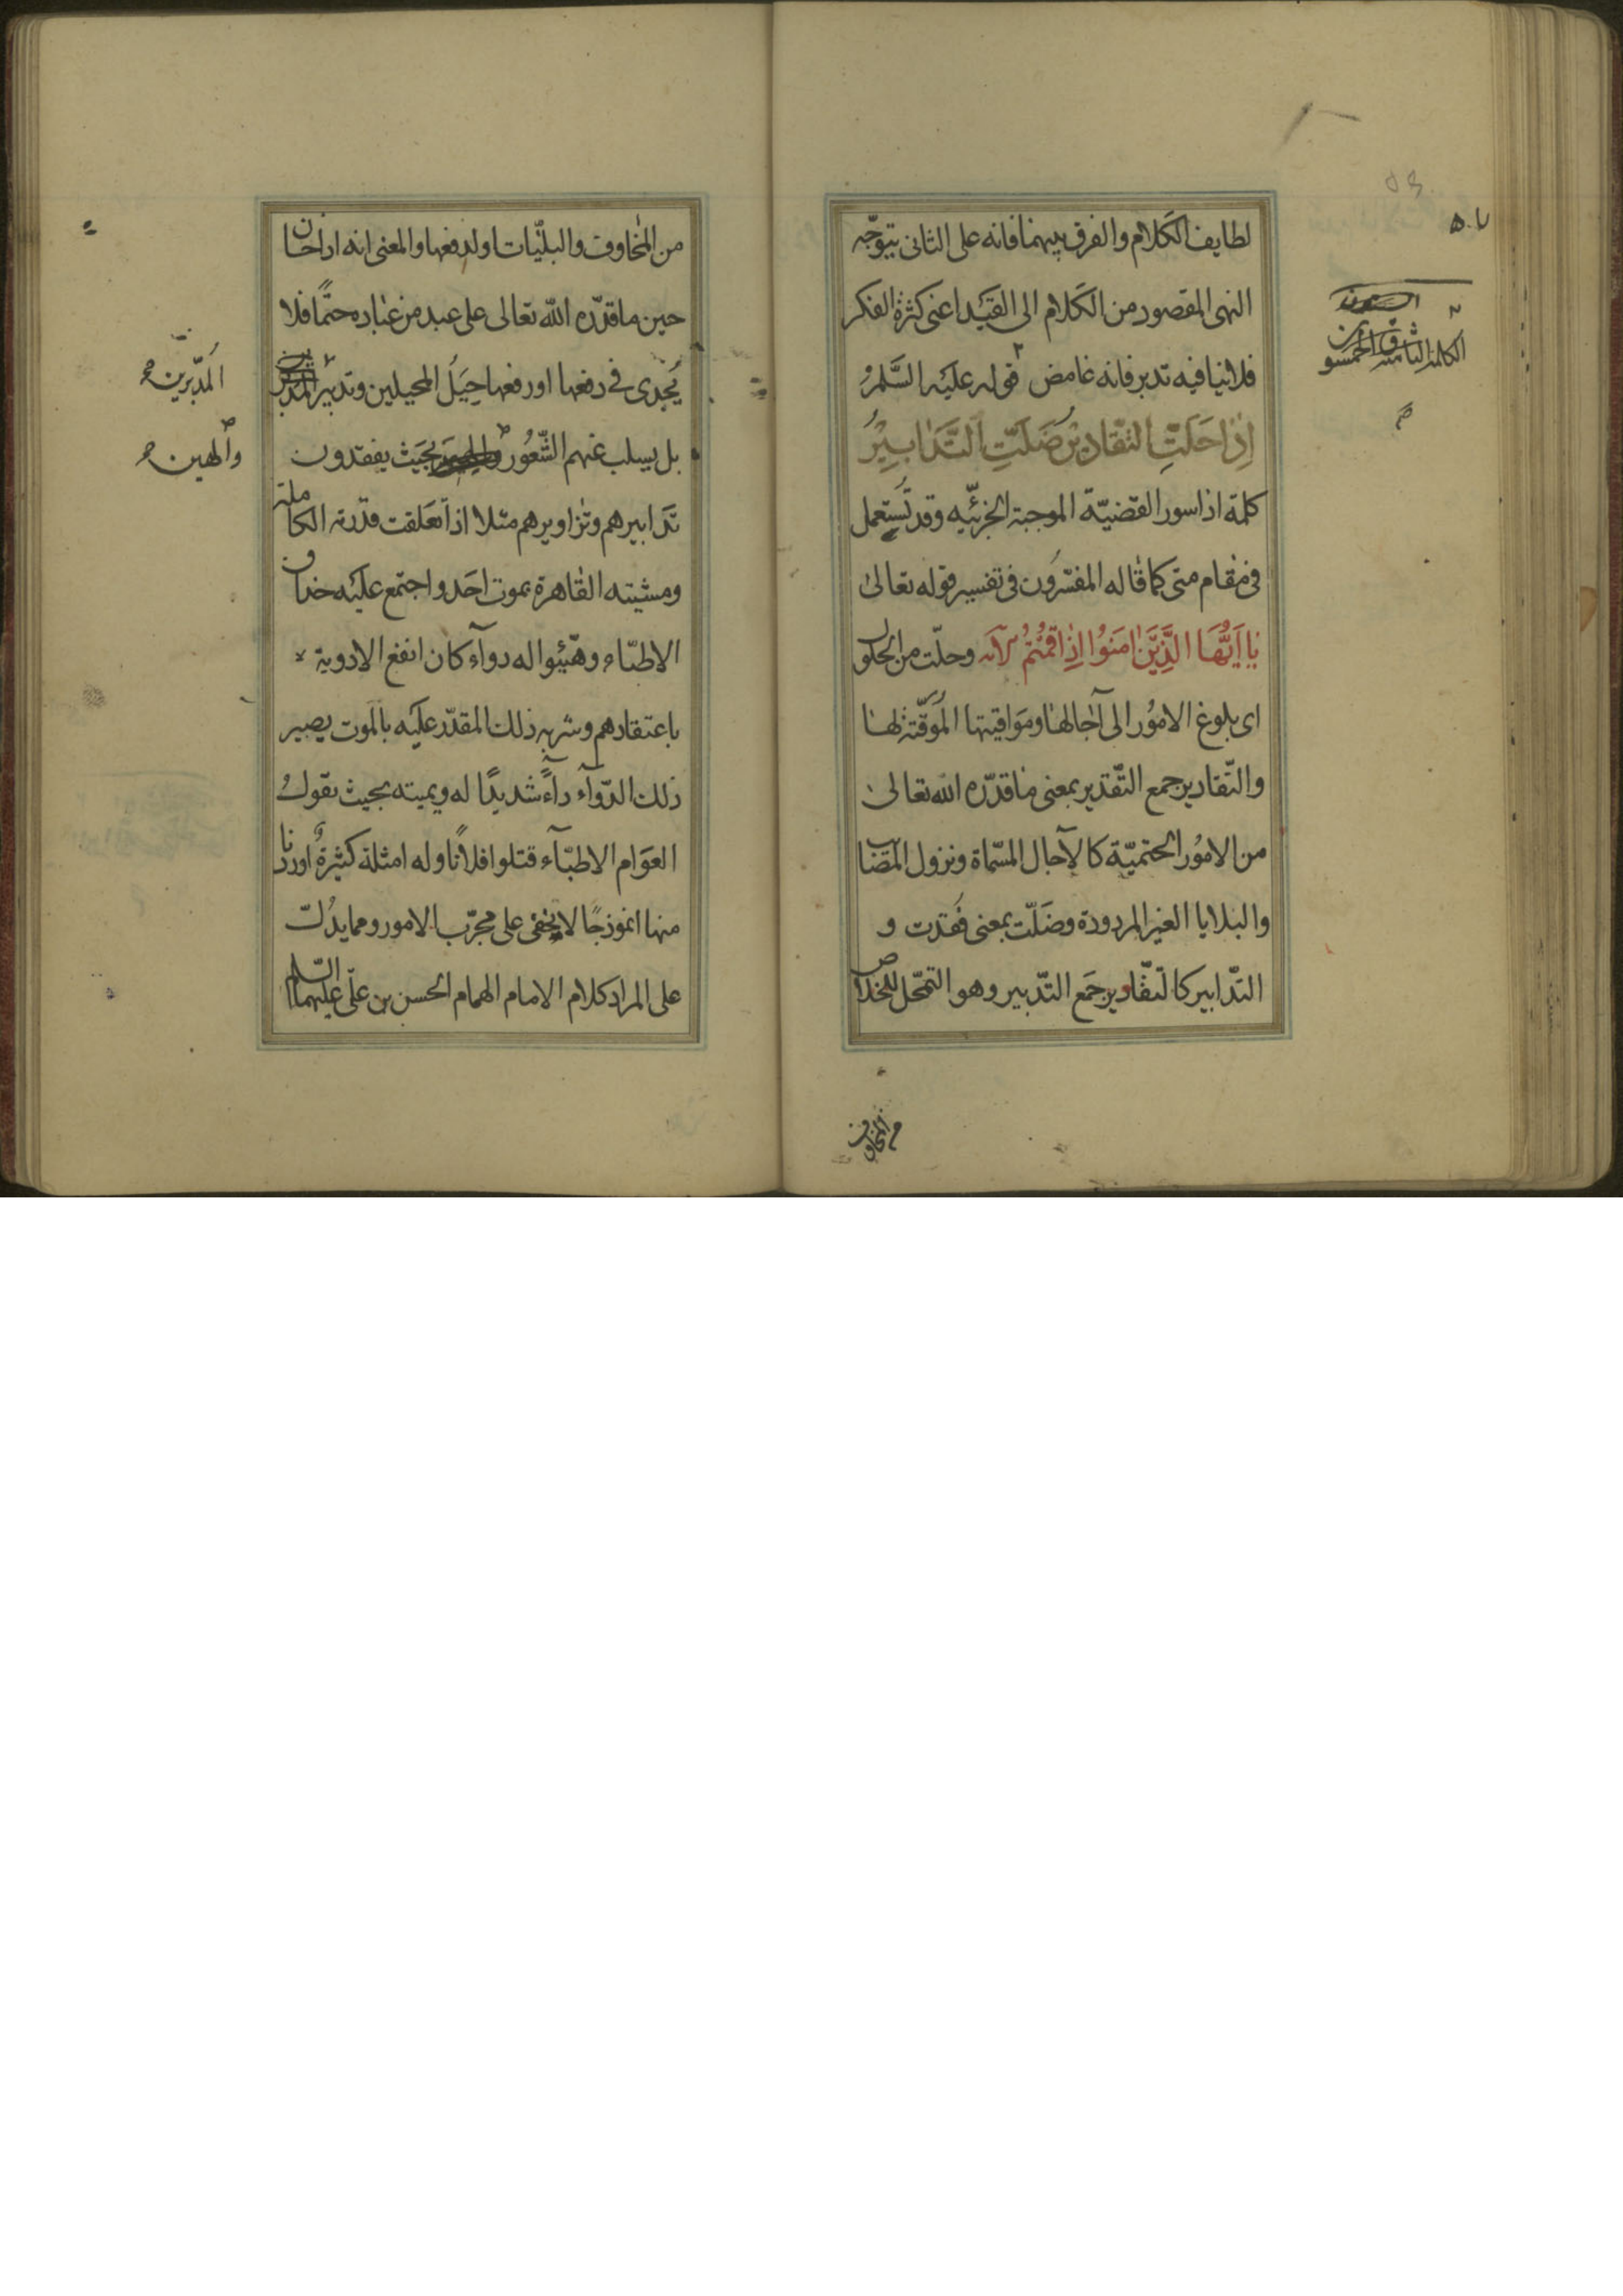 لطايف الكَلام والفرق بينهما فانه على الثانى يتوجّه
النهى المقصود من الكَلام الى القَيْد اعنى كثرة الفكر
فلا ينافيه تدبر فانه غامض قوله عليه السَّلم
اِذٰا حَلَّتِ التَّقٰادِيرُ ضَلَّتِ التَّدٰابِيرُ
كلمة اذا سور القضيّة الموجبة الجزئيّه وقد تُستعمل
فى مقام متى كما قاله المفسّرون فى تفسير قوله تعالى
يٰا اَيُّهَا الَّذِيَنَ اٰمَنُوا اِذٰا قُمْتُمْ الآيه وحلّت من الحلول
اى بلوغ الامُور الى آجالها ومَواقيتها المُوَقّتة لها
والتّقادير جمع التّقدير بمعنى ما قدّره الله تعالى
من الامُور الحتميّة كالآجال المسّماة ونزول المَصَايب
والبلايا الغير المردودة وضَلّت بمعنى فُقدت و
التّدابير كالتّقادير جمَع التّدبير وهو التمحّل للخلاص
الكلمة الثامنة والخمسون
٥٠٧
من المخاوف
من المخاوف والبليّات او لدفعها والمعنى انه اذا حان
حين ما قدّره الله تعالى على عبد من عباده حتمًا فلا
يُجْدى فى دفعها او رفعها حِيَلُ المحيلين وتدبيرُ
المُدَبّرين
بل يسلب عنهم الشّعُور بحَيث يفقدون
تَدابيرهم وتزاويرهم مثلا اذا تعَلقت قدرته الكاملة
ومشيته القاهرة بموت احَد واجتمع عليْه حذاق
الاطبّاء وهَيّئوا له دوآء كان انفع الادوية
باعتقادهم وشربه ذلك المقدّر عليه بالموت يصير
ذلك الدّوآء دآءً شديدًا له ويميته بحيث يقول
العوَام الاطبّآء قتلوا فلانًا وله امثلة كثيرةٌ اوردنا
منها انموذجًا لا يخفى على مجرّب الامور ومما يدُلّ
على المراد كلام الامام الهمام الحسن بن علىّ عليهما السّلم